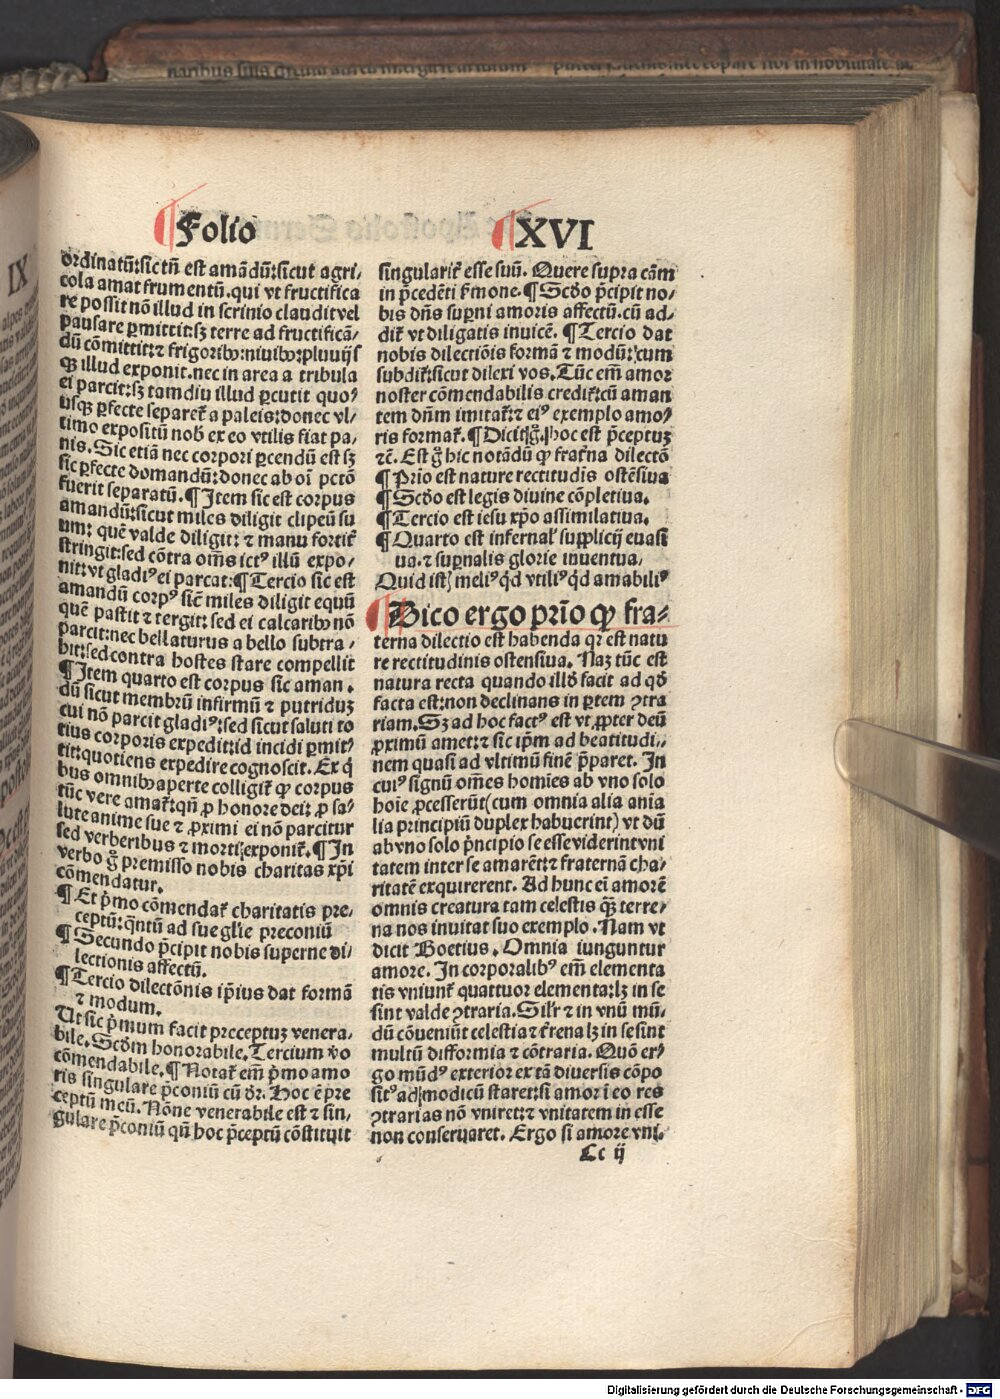 Folio XVI
ordinatū: sic tñ est amādū: sicut agri/
cola amat frumentū. qui vt fructifica
re possit nō illud in scrinio claudit vel
pausare ꝑmittit: sꝫ terre ad fructificā/
dū cōmittit: ⁊ frigoribꝰ: niuibꝰ: pluuijs
qꝫ illud exponit. nec in area a tribula
ei parcit: sꝫ tam diu illud ꝑcutit quoꝰ
usqꝫ ꝑfecte separet̄ a paleis: donec vl/
timo expositū nob̄ ex eo vtilis fiat pa/
nis. Sic etiā nec corpori ꝑcendū est sꝫ
sic ꝑfecte domandū: donec ab oī pctō
fuerit separatū. ¶ Item sic est corpus
amandū: sicut miles diligit clipeū su
um: quē valde diligit: ⁊ manu fortit̄
stringit: sed cōtra om̄s ictꝰ illū expo/
nit: vt gladiꝰ ei parcat: ¶ Tercio sic est
amandū corpꝰ sic̄ miles diligit equū
quē pastit ⁊ tergit: sed ei calcaribꝰ nō
parcit: nec bellaturus a bello subtra/
hit: sed contra hostes stare compellit
¶ Item quarto est corpus sic aman.
dū sicut membrū infirmū ⁊ putriduꝫ
cui nō parcit gladiꝰ: sed sicut saluti to
tius corporis expedit: id incidi ꝑmit
tit: quotiens expedire cognoscit. Ex q̄
bus omnibꝰ aperte colligit̄ ꝙ corpus
tūc vere amat̄: qñ ꝓ honore dei: ꝓ sa/
lute anime sue ⁊ ꝓximi ei nō parcitur
sed verberibus ⁊ morti exponit̄. ¶ In
verbo g̊ premisso nobis charitas xp̄i
cōmendatur.
¶ Et p̄mo cōmendat̄ charitatis pre/
ceptū: q̄ntū ad sue gl̄ie preconiū
¶ Secundo p̄cipit nobis superne di/
lectionis affectū.
¶ Tercio dilectōnis ip̄ius dat formā
⁊ modum.
Ut sic p̄mum facit preceptuꝫ venera/
bile. Scd̄m honorabile. Tercium v̄o
cōmendabile. ¶ Notat̄ em̄ p̄mo amo
ris singulare p̄coniū cū dr̄. Hoc ē pre
ceptū meū. Nōne venerabile est ⁊ sin/
gulare p̄coniū qn̄ hoc p̄ceptū cōstituit
singularit̄ esse suū. Quere supra cām
in p̄cedēti s̄mone. ¶ Scd̄o p̄cipit no/
bis dñs suꝑni amoris affectū. cū ad/
dit̄ vt diligatis inuicē. ¶ Tercio dat
nobis dilectiōis formā ⁊ modū: cum
subdit̄: sicut dilexi vos. Tūc em̄ amor
noster cōmendabilis credit̄: cū aman
tem dñm imitat̄: ⁊ eiꝰ exemplo amo/
ris format̄. ¶ Dicit g̊. hoc est p̄ceptuꝫ
⁊c̄. Est g̊ hic notādū ꝙ frat̄na dilectō
¶ Prīo est nature rectitudīs ostēsiua
¶ Scd̄o est legis diuine cōpletiua.
¶ Tercio est iesu xp̄o assimilatiua.
¶ Quarto est infernal̄ supplicij euasi
ua. ⁊ suꝑnalis glorie inuentua.
Quid istꝫ meliꝰ q̇d vtiliꝰ q̇d amabiliꝰ
¶ Dico ergo prīo ꝙ fra/
terna dilectio est habenda qꝛ est natu
re rectitudinis ostensiua. Naꝫ tūc est
natura recta quando illd̄ facit ad qd̄
facta est: non declinans in ꝑtem ꝯtra
riam. Sꝫ ad hoc factꝰ est vt ꝓpter deū
ꝓximū amet: ⁊ sic ip̄m ad beatitudi/
nem quasi ad vltimū finē p̄paret. In
cuiꝰ signū om̄es hom̄ies ab vno solo
hoīe ꝓcesserūt (cum omnia alia anīa
lia principiū duplex habuerint) vt dū
ab vno solo p̄ncipio se esse viderint vni
tatem inter se amarēt: ⁊ fraternā cha/
ritatē exquirerent. Ad hunc eī amorē
omnis creatura tam celestis qꝫ terre/
na nos inuitat suo exemplo. Nam vt
dicit Boetius. Omnia iunguntur
amore. In corporalibꝰ em̄ elementa
tis vniunt̄ quattuor elementa: lꝫ in se
sint valde ꝯtraria. Sil̄r ⁊ in vnū mū/
dū cōueniūt celestia ⁊ t̄rena lꝫ in se sint
multū difformia ⁊ cōtraria. Quō er/
go mūdꝰ exterior ex tā diuersis cōpo
sitꝰ ad modicū staret: si amor ī eo res
ꝯtrarias nō vniret: ⁊ vnitatem in esse
non conseruaret. Ergo si amore vni.
Cc ij
Digitalisierung gefördert durch die Deutsche Forschungsgemeinschaft - DFG